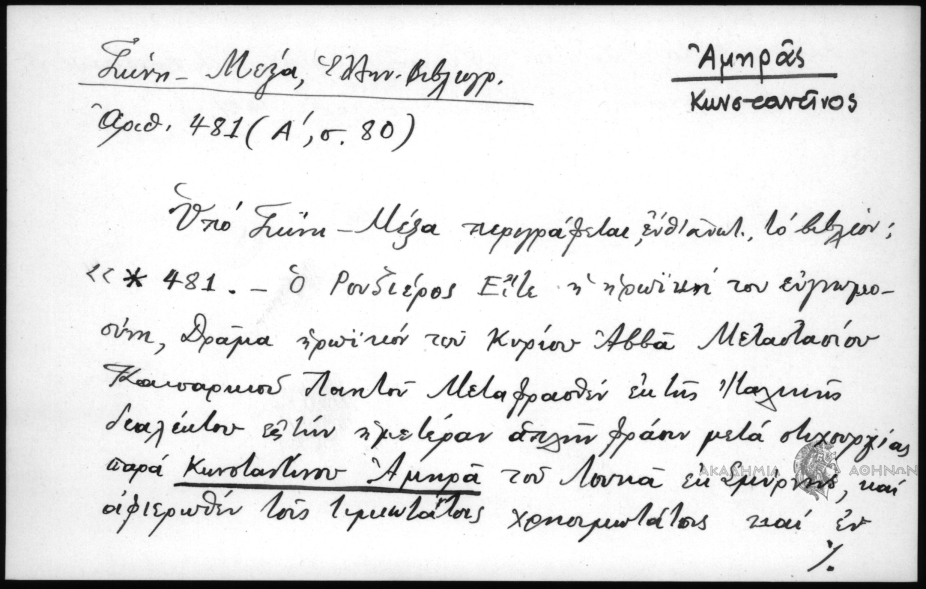 Γκίνη - Μέξα, Ἑλλην. Βιβλιογρ.
Ἀμηρᾶς
Κωνσταντῖνος
Ἀριθ. 481 (Α', σ. 80)
Ὑπό Γκίνη - Μέξα περιγράφεται, τό βιβλίον:
«* 481. - Ὁ Ρουτζιέρος Εἴτε ἡ ἡρωϊκή του εὐγνωμο-
σύνη, Δρᾶμα ἡρωϊκόν τοῦ Κυρίου Ἀββᾶ Μεταστασίου
Καισαρικοῦ Ποιητοῦ Μεταφρασθέν ἐκ τῆς Ἰταλικῆς
διαλέκτου εἰς τήν ἡμετέραν ἁπλῆν φράσιν μετά στιχουργίας
παρά Κωνσταντίνου Ἀμηρᾶ τοῦ Λουκᾶ ἐκ Σμύρνης, καί
ΑΚΑΔΗΜΙΑ ΑΘΗΝΩΝ
ἀφιερωθέν τοῖς τιμιωτάτοις χρησιμωτάτοις καί ἐν
%.